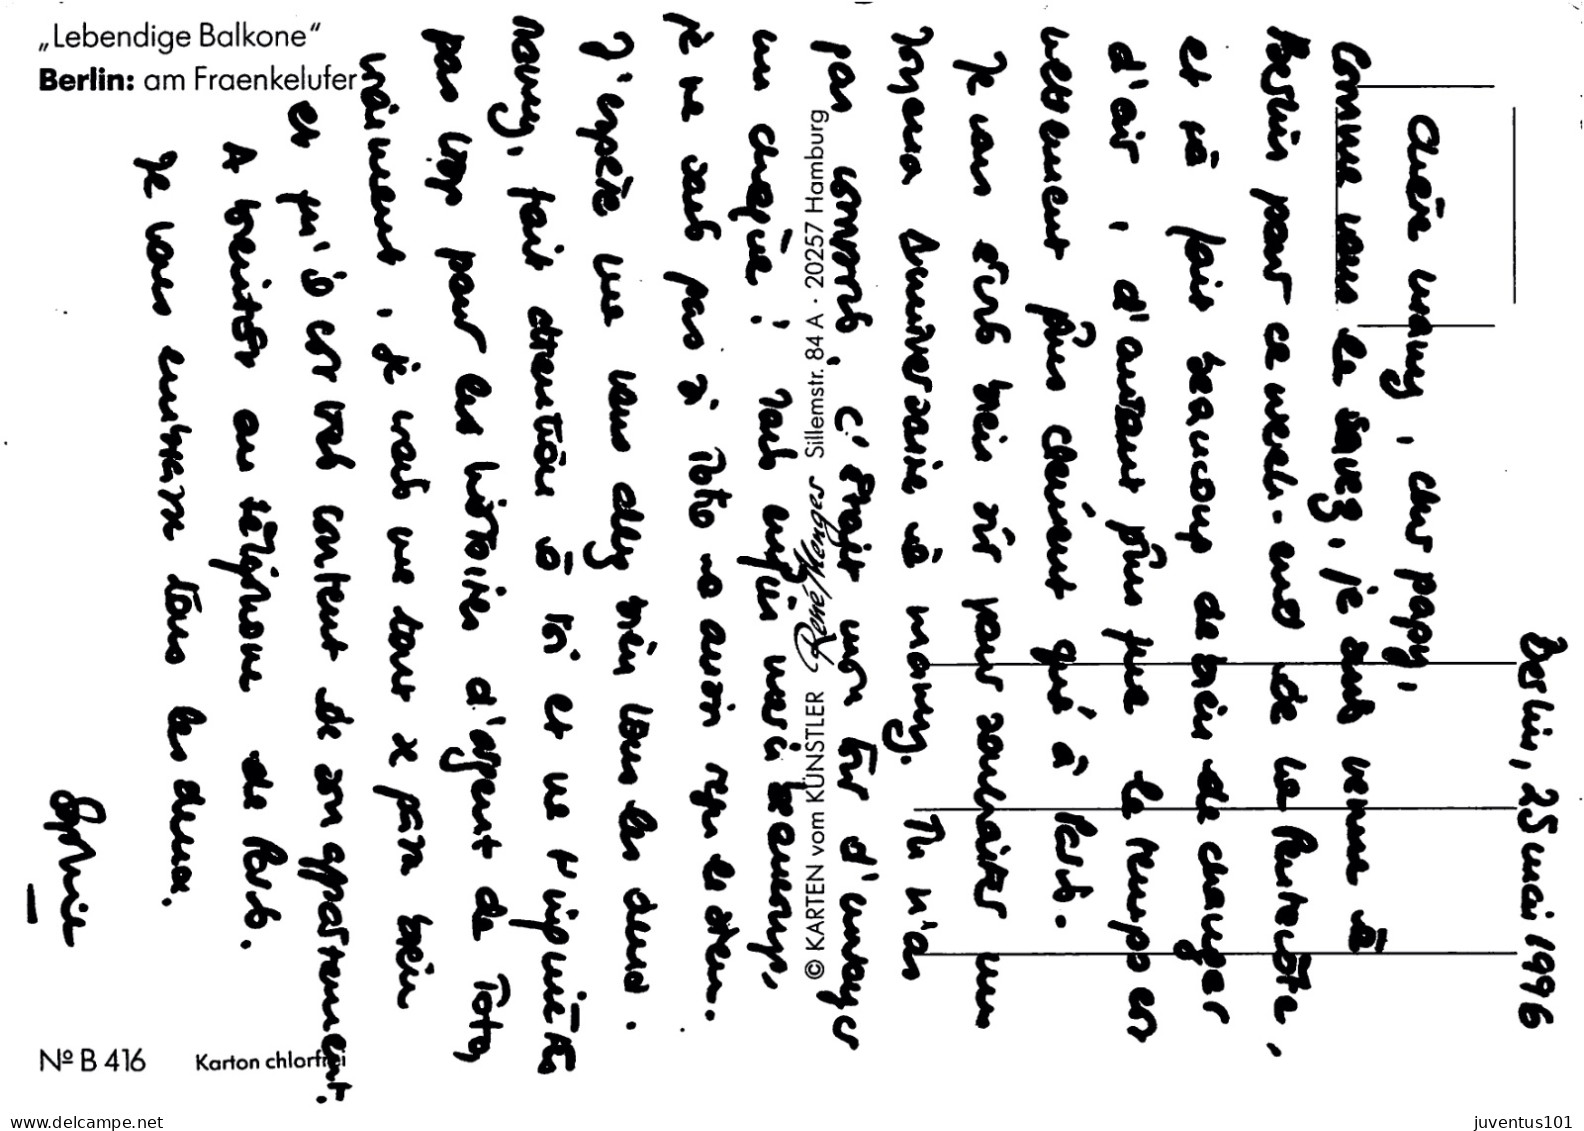 „Lebendige Balkone“
Berlin: am Fraenkelufer
Berlin, 25 mai 1996
Chère mamy, cher papy,
Comme vous le savez, je suis venue à
Berlin pour ce week-end de la Pentecôte,
et ça fait beaucoup de bien de changer
d'air, d'autant plus que le temps est
nettement plus clément qu'à Paris.
Je vais bien sûr pour souhaiter un
joyeux anniversaire à mamy. Tu n'as
pas compris, c'était mon tour d'envoyer
un chèque! Mais enfin merci beaucoup,
je ne sais pas si Toto a reçu le sien.
J'espère que vous allez bien tous les deux.
Mamy, fais attention à toi et ne t'inquiète
pas trop pour les histoires d'argent de Toto,
vraiment, je crois que tout se passe bien
et qu'il est très content de son appartement.
A bientôt au téléphone de Paris.
Je vous embrasse tous les deux.
Sophie
© KARTEN vom KÜNSTLER René Menger Sillemstr. 84 A · 20257 Hamburg
Nº B 416 Karton chlorfrei
www.delcampe.net
juventus101